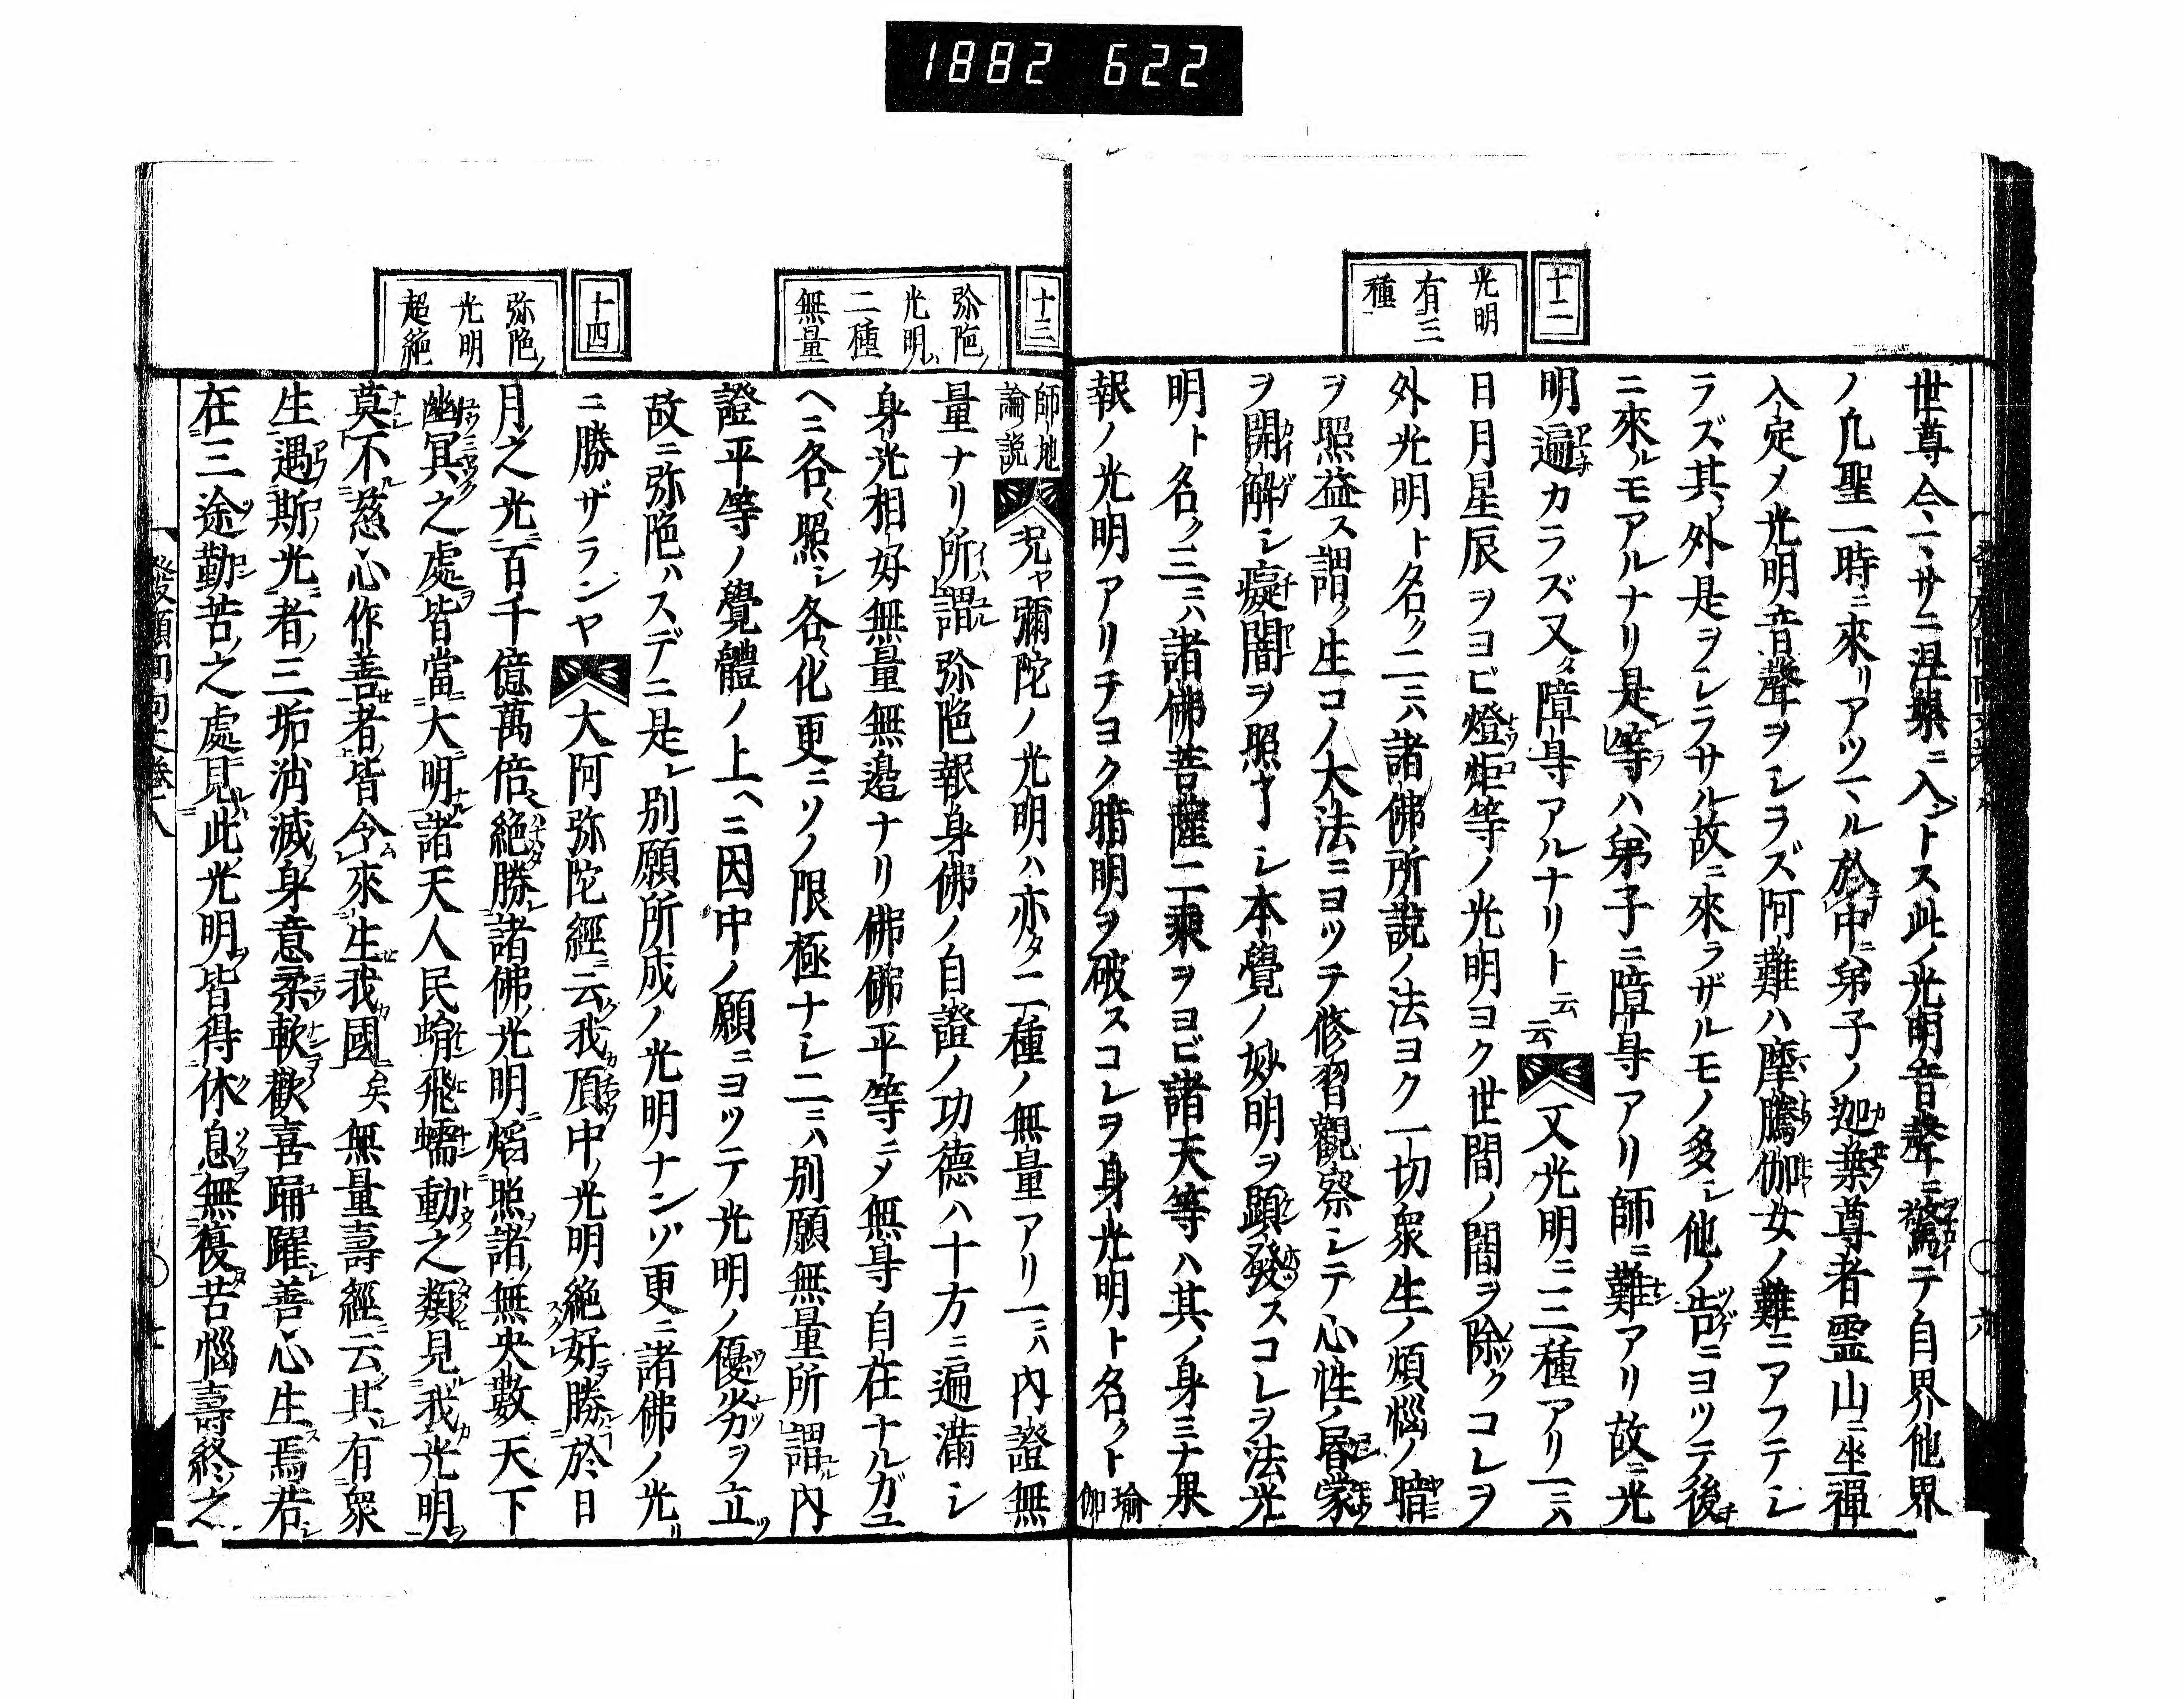 1882 622
十二
光明
有三
種
世尊今マサニ涅槃ニ入ントス此ノ光明音聲ニ驚テ自界他界
ノ凡聖一時ニ來リアツマル於中ニ弟子ノ迦葉尊者霊山ニ坐禪
入定メ光明音聲ヲシラズ阿難ハ摩騰伽女ノ難ニアフテシ
ラズ其ノ外是ヲシラサル故ニ來ラザルモノ多シ他ノ告ニヨツテ後
ニ來ルモアルナリ是等ハ弟子ニ障㝵アリ師ニ難アリ故ニ光
明遍カラズ又タ障㝵アルナリト云云又光明ニ三種アリ一ニハ
日月星辰ヲヨビ燈炬等ノ光明ヨク世間ノ闇ヲ除クコレヲ
外光明ト名ク二ニハ諸佛所説ノ法ヨク一切衆生ノ煩惱ノ暗
ヲ照益ス謂ク生コノ大法ニヨツテ修習觀察シテ心性ノ昏蒙
ヲ開解シ癡闇ヲ照了シ本覺ノ妙明ヲ顕發スコレヲ法光
明ト名ク三ニハ諸佛菩薩二乘ヲヨビ諸天等ハ其ノ身ミナ果
報ノ光明アリチヨク暗明ヲ破スコレヲ身光明ト名クト瑜伽
十三
弥陁ノ
光明ハ
二種
無量
十四
弥陁ノ
光明
超絶
師地論説況ヤ彌陀ノ光明ハ亦タ二種ノ無量アリ一ニハ内證無
量ナリ所謂弥陁報身佛ノ自證ノ功德ハ十方ニ遍満シ
身光相好無量無邉ナリ佛佛平等ニメ無㝵自在ナルガユ
ヘニ各〻照シ各〻化更ニソノ限極ナシ二ニハ別願無量所謂内
證平等ノ覺體ノ上ヘニ因中ノ願ニヨツテ光明ノ優劣ヲ立ツ
故ニ弥陁ハスデニ是レ別願所成ノ光明ナンゾ更ニ諸佛ノ光リ
ニ勝ザランヤ大阿弥陀經ニ云我頂中ノ光明絶好勝於日
月之光百千億萬倍絶勝諸佛光明焔照諸無央數天下
幽冥之處皆當大明諸天人民蝖飛蠕動之類見我光明
莫不慈心作善者皆令來生我國矣無量壽經云其有衆
生遇斯光者三垢消滅身意柔軟歡喜踊躍善心生焉若
在三途勤苦之處見此光明皆得休息無復苦惱壽終之
發願回向文巻八